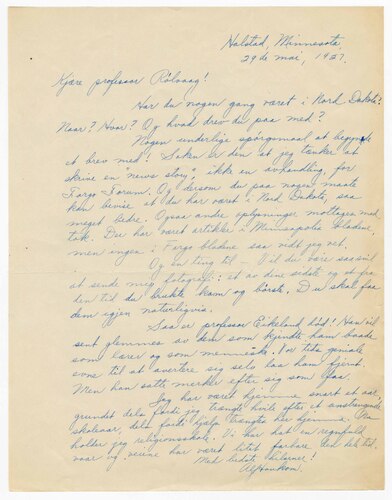 Halstad, Minnesota,
29de mai, 1927.
Kjære professor Rölvaag!
Har du nogen gang været i Nord Dakota?
Naar? Hvor? Og hvad drev du paa med?
Nogen underlige spörgsmaal at begynde
et brev med! Saken er den at jeg tenker at
skrive en "news story", ikke en avhandling, for
Fargo Forum. Og dersom du paa nogen maate
kan bevise at du har været i Nord Dakota, saa
meget bedre. Ogsaa andre oplysninger mottages med
tak. Der har været artikler i Minneapolis bladene,
men ingen i Fargo bladene saa vidt jeg vet.
Og en ting til - Vil du være saa snil
at sende mig fotografi: et av dine sidste og et fra
den tid du brukte kam og börste. Du skal faa
dem igjen naturligvis.
Saa er professor Eikeland död! Han vil
sent glemmes av dem som kjendte ham baade
som lærer og som menneske. For
evne til at avertere sig selv laa ham fjernt.
Men han satte merker efter sig som faa.
Jeg har været hjemme snart et aar,
grundet dels fordi jeg trængte hvile efter et anstrengende
skoleaar, dels fordi hjelp trængtes her hjemme. Nu
holder jeg religionsskole. Vi har hat en regnfuld
vaar og veiene har været litet farbare den hele tid.
Med bedste hilsener!